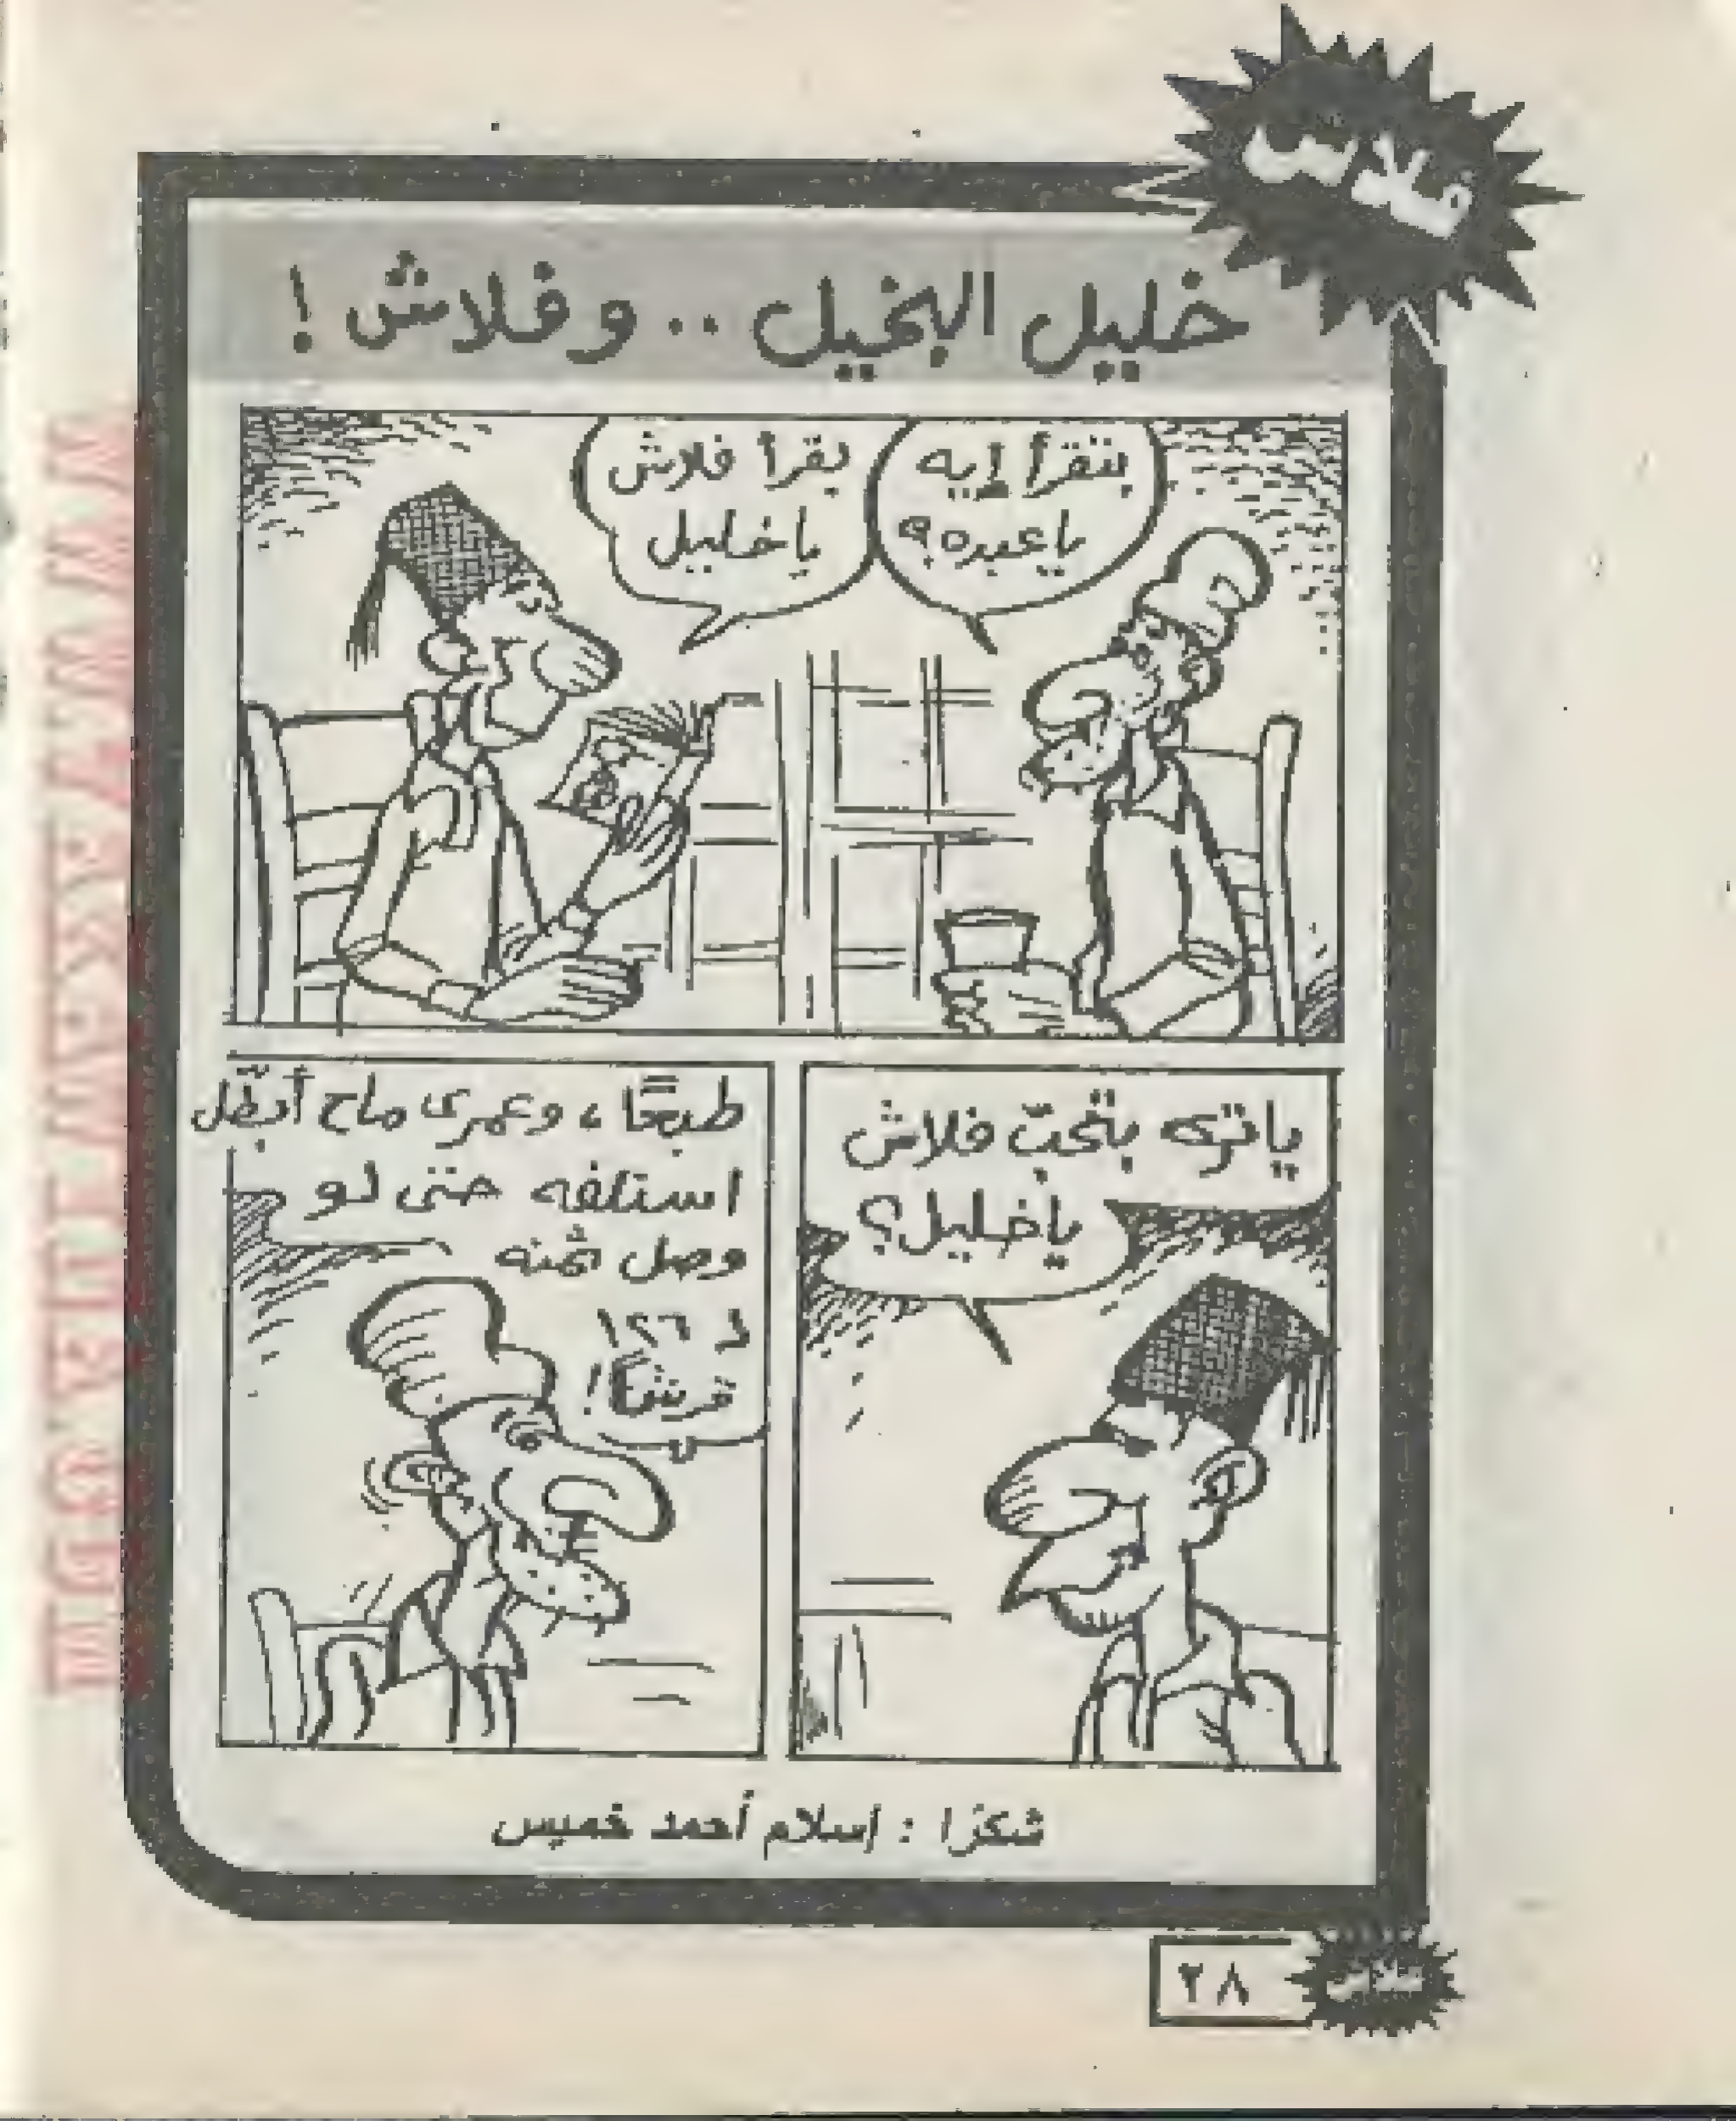 فلاش
خليل البخيل .. وفلاش !
بتقرأ إيه
ياعبده؟
بقرأ فلاش
ياخليل
ياترى بتحبّ فلاش
ياخليل؟
طبعًا، وعمرى ماح أبطّل
استلفه حتى لو
وصل ثمنه
لـ ١٢٦
قرشًا!
شكرًا : إسلام أحمد خميس
٢٨
فلاش